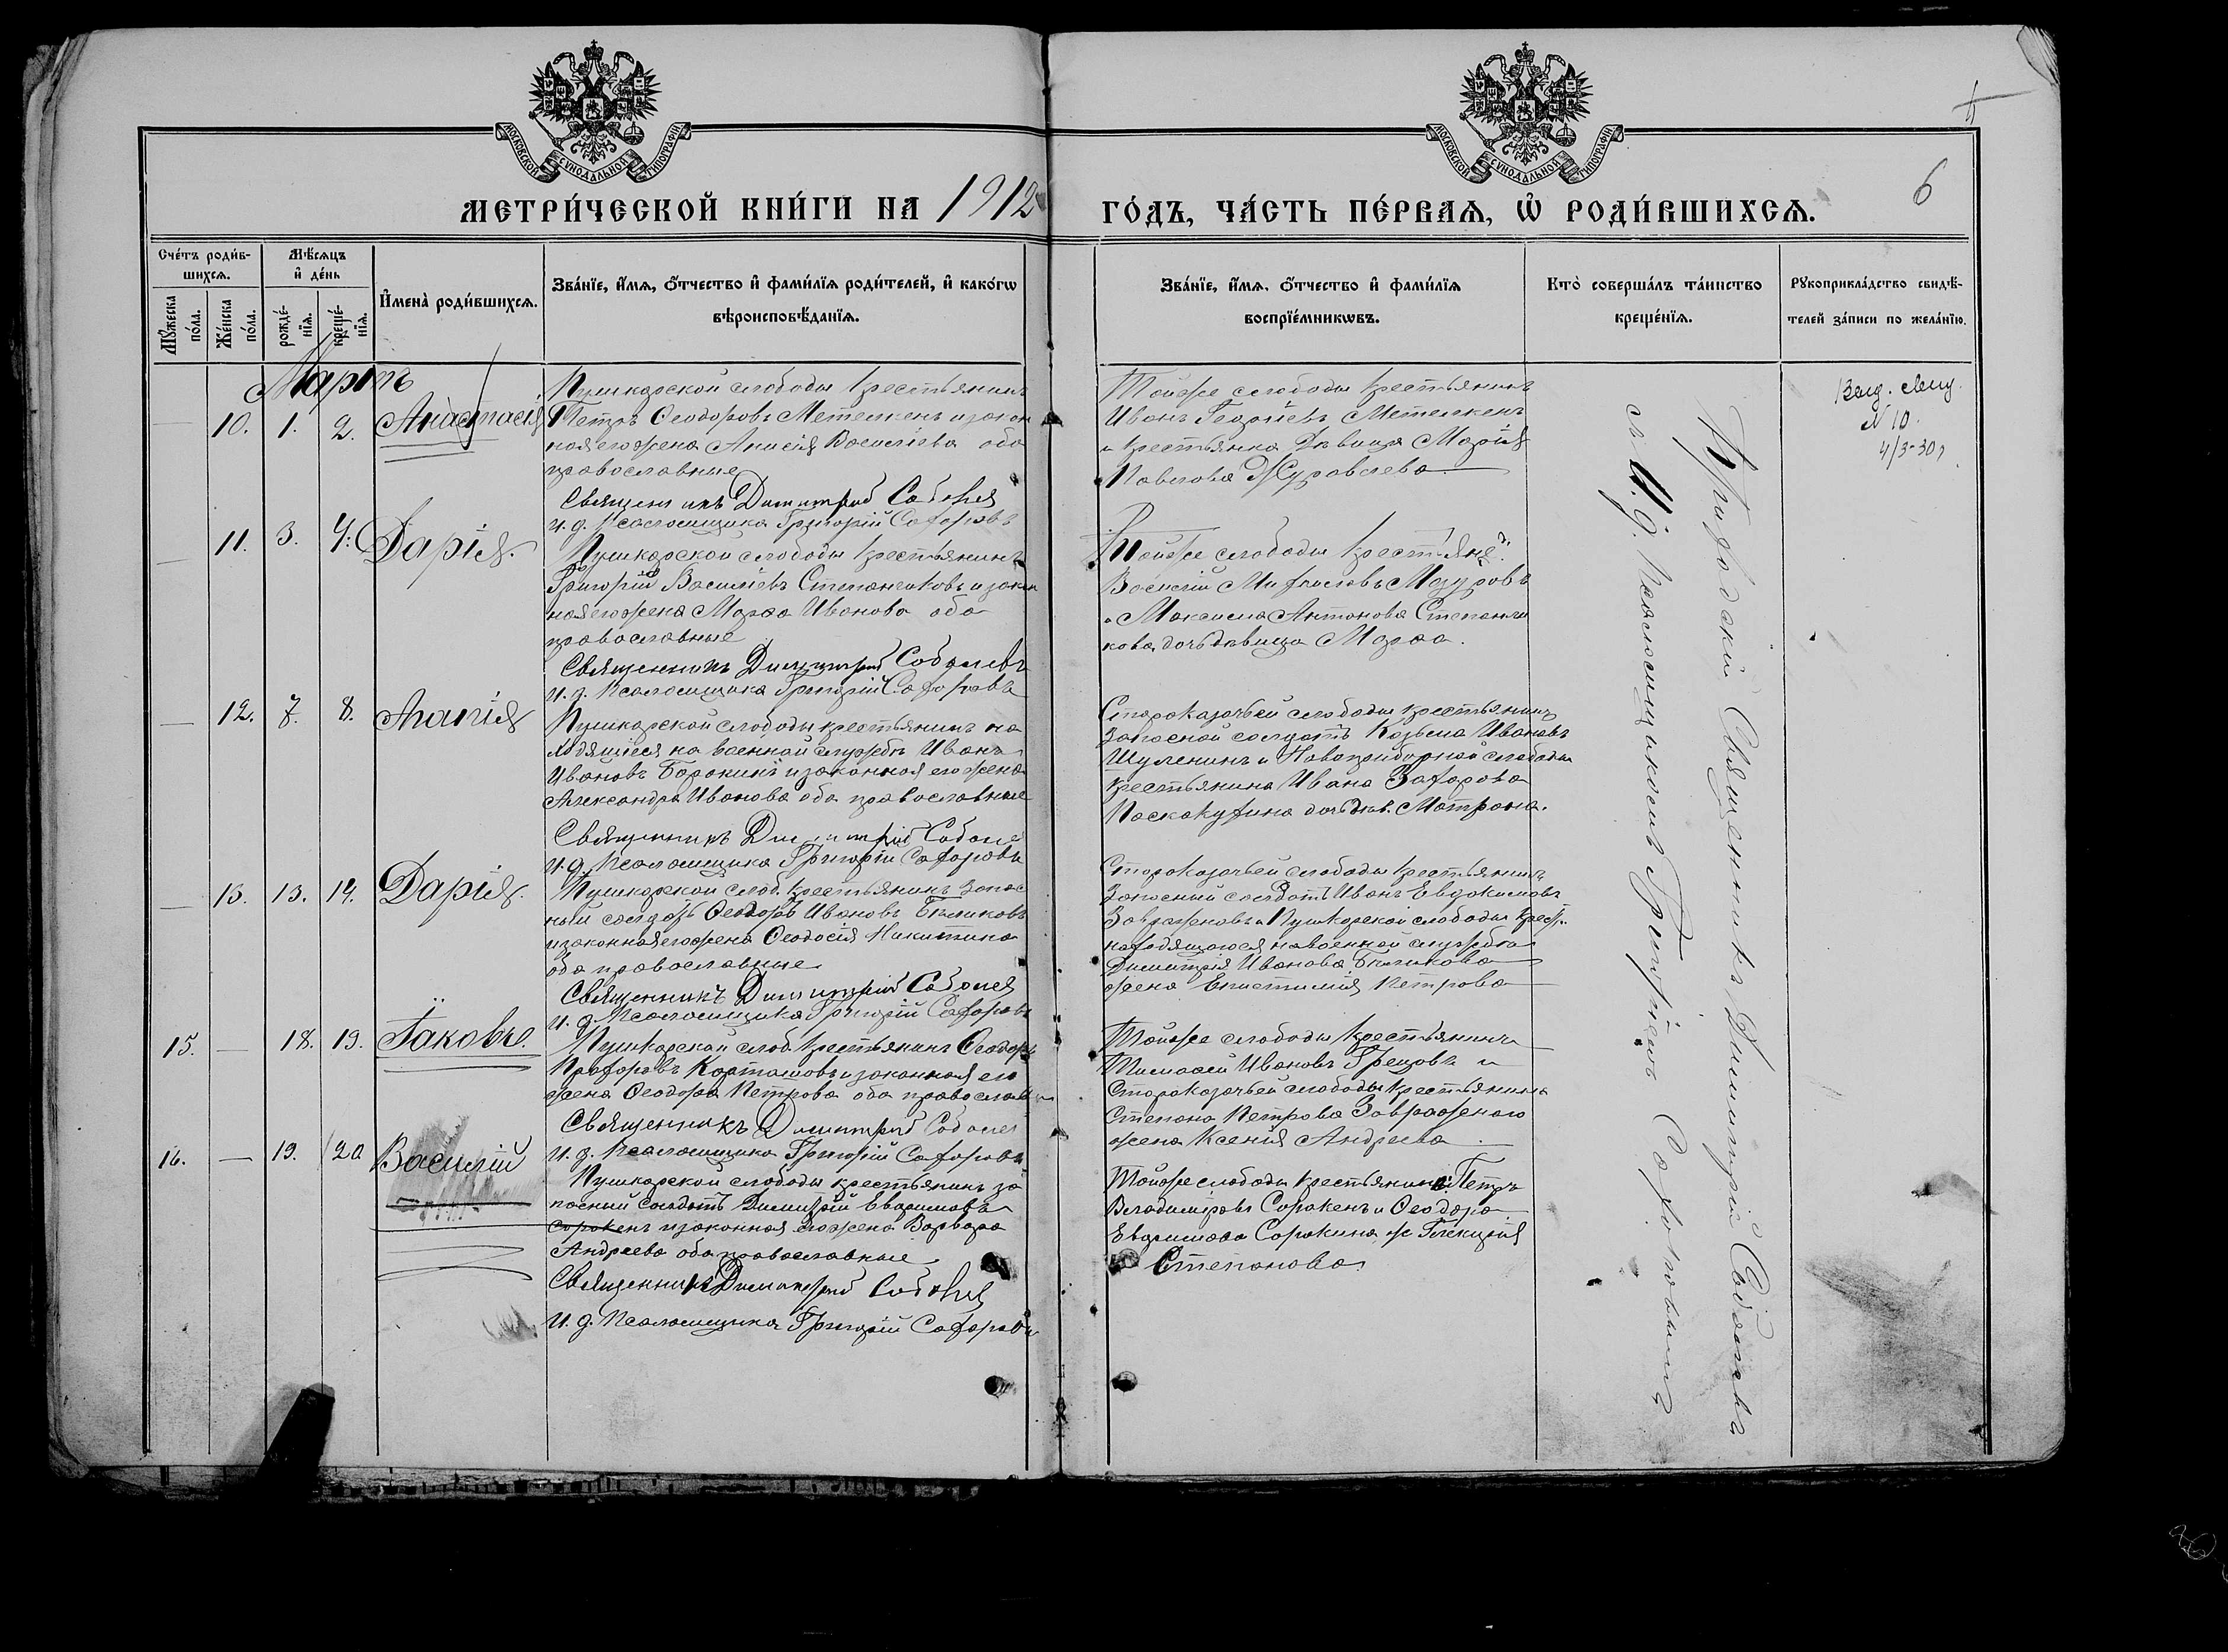 МОСКОВСКОЙ СУНОДАЛЬНОЙ ТИПОГРАФІИ
МОСКОВСКОЙ СУНОДАЛЬНОЙ ТИПОГРАФІИ
6
МЕТРИ́ЧЕСКОЙ КНИ́ГИ НА 1912 ГО́ДЪ, ЧА́СТЬ ПЕ́РВАѦ, Ѡ҆ РОДИ́ВШИХСѦ.
Сче́тъ роди́в-
шихсѧ.
Мꙋ́жеска по́ла.
Же́нска по́ла.
Мѣ́сѧцъ
и҆ де́нь
рожде́-
нїѧ.
креще́-
нїѧ.
И҆мена̀ роди́вшихсѧ.
Зва́нїе, и҆́мѧ, ѻ҆́тчество и҆ фами́лїѧ роди́телей, и҆ како́гѡ
вѣроисповѣ́данїѧ.
Зва́нїе, и҆́мѧ, ѻ҆́тчество и҆ фами́лїѧ
воспрїе́мникѡвъ.
Кто̀ соверша́лъ та́инство
креще́нїѧ.
Рꙋкоприкла́дство свидѣ́-
телей за́писи по жела́нїю.
Мартъ
— 10. 1. 2. Анастасія
Пушкарской слободы крестьянинъ
Петръ Ѳеодоровъ Метелкенъ и закон
ная его жена Анисія Василіева оба
православные
Священникъ Димитрій Соболев
И. д. Псаломщика Григорій Сафоровъ
Тойже слободы крестьянинъ
Иванъ Георгіевъ Метелкенъ
и крестьянка дѣвица Марія
Павлова Журавлева
Выд. свид.
N 10.
4/3-30 г
— 11. 3. 4. Дарія.
Пушкарской слободы крестьянинъ
Григорій Василіевъ Степанениковъ и закон
ная его жена Марѳа Иванова оба
православные
Священникъ Димитрій Соболевъ
И. д. Псаломщика Григорій Сафоровъ
Тойже слободы крестьяне:
Василій Мазуровъ
и Максима Антонова Степанни
кова дочь дѣвица Марѳа.
— 12. 7. 8. Анапія
Пушкарской слободы крестьянинъ на
ходящійся на военной службѣ Иванъ
Ивановъ Боронинъ и законная его жена
Александра Иванова оба православные
Священникъ Димитрій Соболе
И. д. Псаломщика Григорій Сафоровъ
Староказачьей слободы крестьянинъ
запасной солдатъ Козьма Ивановъ
Шуленинъ и Новоприборной слободы
крестьянина Ивана Захарова
Поскакухина дочь дѣв. Матрона.
— 13. 13. 14. Дарія.
Пушкарской слоб. крестьянинъ запас
ной солдатъ Ѳеодоръ Ивановъ Бѣликовъ
и законная его жена Ѳеодосія Никитина
оба православные
Священникъ Димитрій Соболев
И. д. Псаломщика Григорій Сафоровъ
Староказачьей слободы крестьянинъ
запасный солдатъ Иванъ Евдокимовъ
Завражновъ и Пушкарской слободы крест.
находящагося на военной службѣ
Димитрія Иванова Бѣликова
жена Епистимія Петрова
15. — 18. 19. Іаковъ.
Пушкарской слоб. крестьянинъ Ѳеодоръ
Прохоровъ Карташовъ и законная его
жена Ѳеодора Петрова оба православн
Священникъ Димитрій Соболев
И. д. Псаломщика Григорій Сафоровъ
Тойже слободы крестьянинъ
Тимоѳей Ивановъ Грецовъ и
Староказачьей слободы крестьянина
Степана Петрова Завражнаго
жена Ксенія Андреева
16. — 19. 20 Василій
Пушкарской слободы крестьянинъ за
пасный солдатъ Димитрій Евфимовъ
Сорокенъ и законная его жена Варвара
Андреева оба православные
Священникъ Димитрій Соболев
И. д. Псаломщика Григорій Сафоровъ
Тойже слободы крестьянинъ Петръ
Владиміровъ Сорокенъ и Ѳеодора
Евфимова Сорокина ж Гликерія
Степанова
Приходскій Священникъ Димитрій Соболевъ
съ И. д. Псаломщикомъ Григоріемъ Сафоровымъ